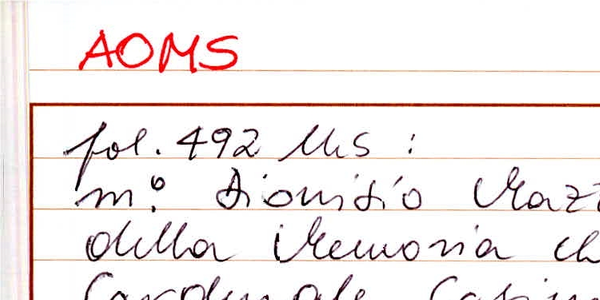 AOMS
fol. 492 Ms :
m.º Dionisio
della Memoria ch
Cardinale